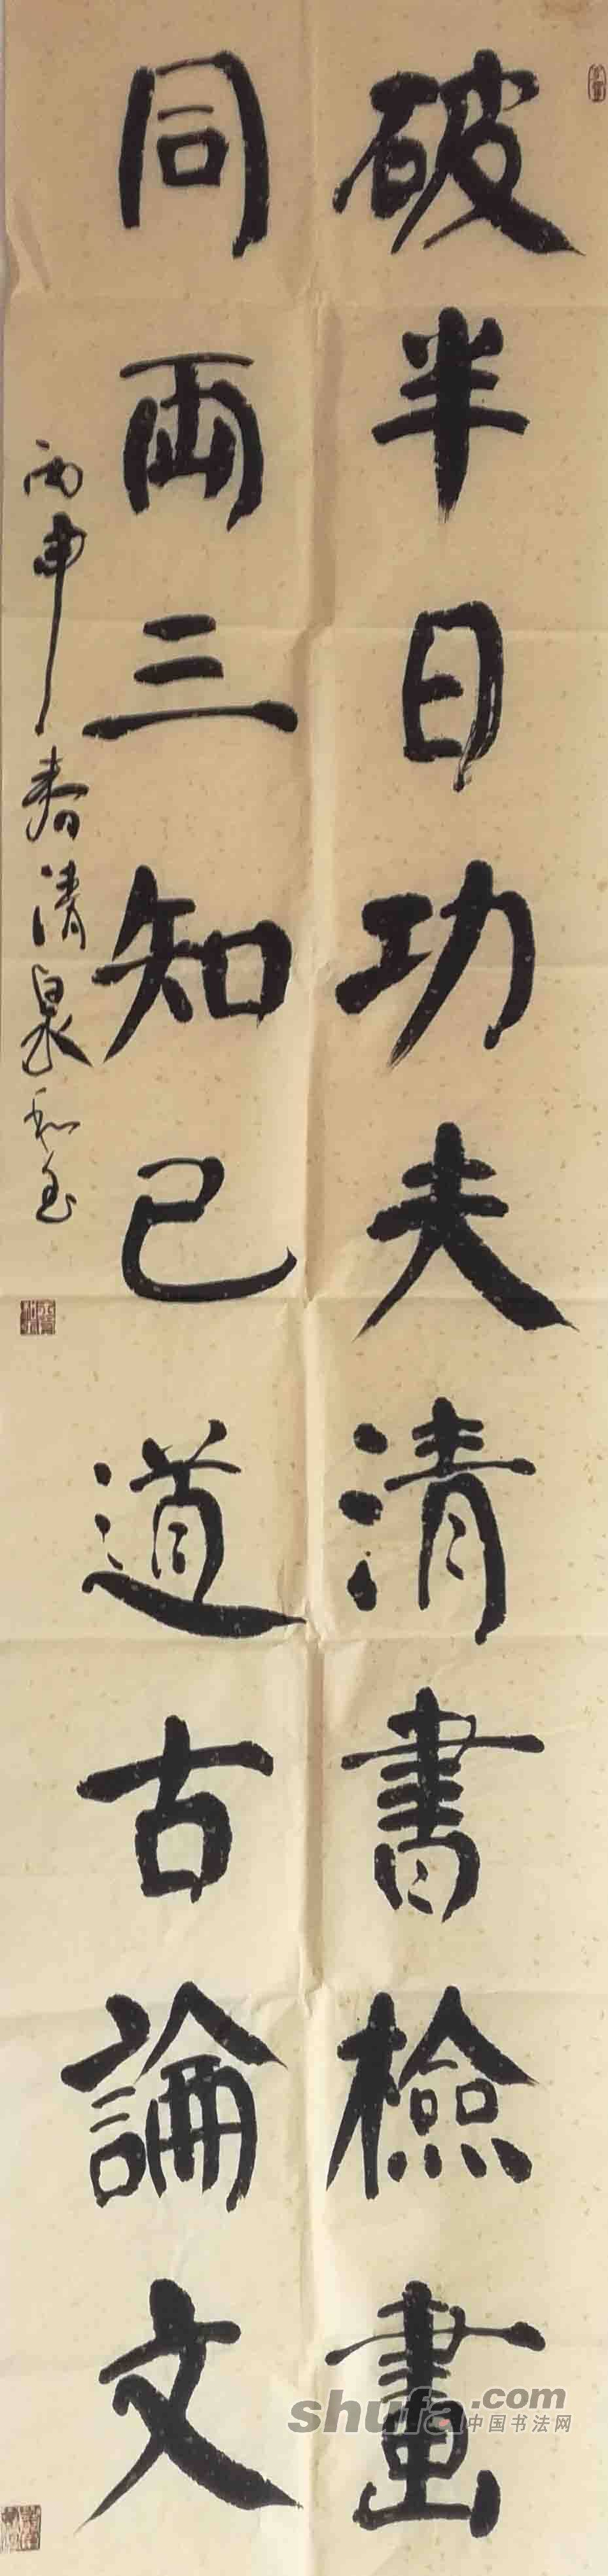 破半日功夫清書檢畫
同兩三知己道古論文
丙申春清泉
shufa.com
中国书法网